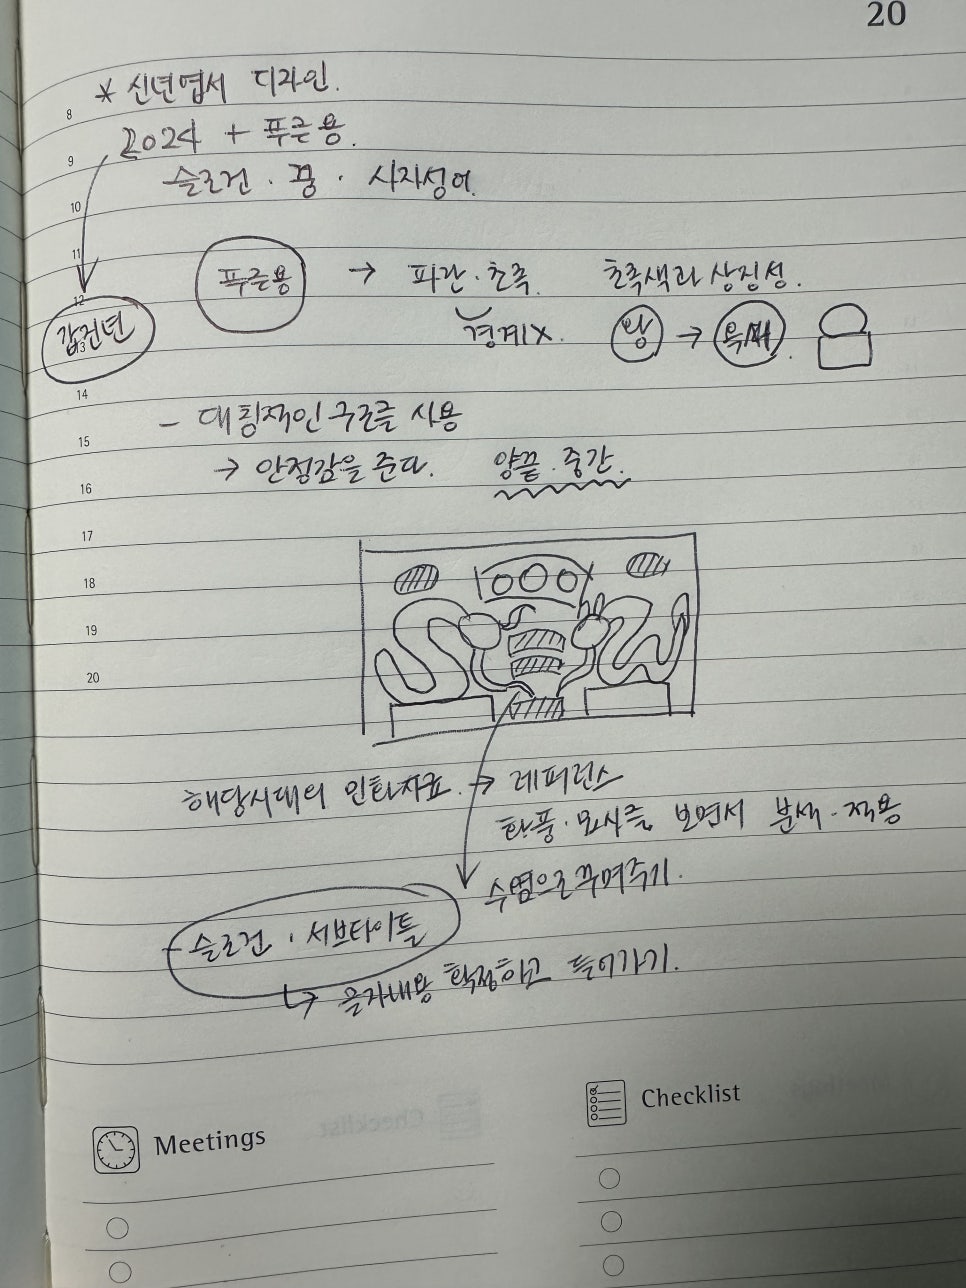 20
* 신년엽서 디자인.
8
2024 + 푸른용.
9
슬로건 · 꿈 · 사자성어.
10
11
푸른용 → 파란 · 초록. 초록색과 상징성.
12
갑진년
13
경계X. 왕 → 옥새.
14
- 대칭적인 구조를 사용
15
→ 안정감을 준다. 양끝 · 중간.
16
17
18
19
20
해당시대의 → 레퍼런스
화풍 · 묘사를 보면서 분석 · 적용
수염으로 꾸며주기.
- 슬로건 · 서브타이틀
↳ 글자내용 확정하고 들어가기.
Meetings
Checklist